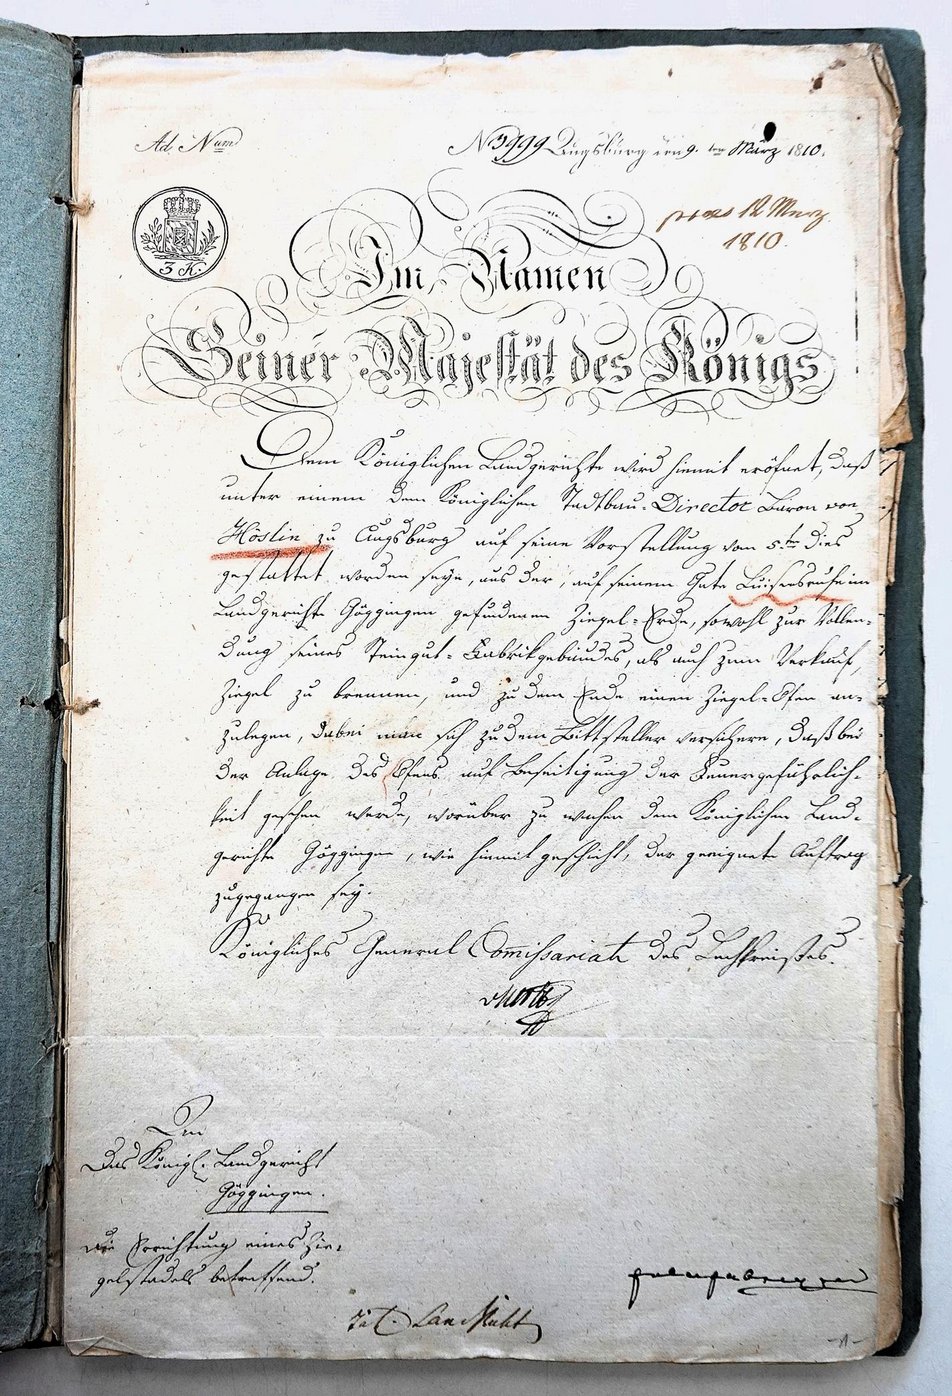 Ad Num
No 3999 Augsburg den 9. ten März 1810.
praes 12 Merz
1810.
3 K.
Im Namen
Seiner Majestät des Königs
Dem Königlichen Landgerichte wird hiemit eröfnet, daß
unter einem dem Königlichen Stadtbau-Director Baron von
Höslin zu Augsburg auf seine Vorstellung vom 5.ten dies
gestattet worden seye, aus der, auf seinem Gute Luisensruhe im
Landgerichte Göggingen gefundenen Ziegel-Erde, sowohl zur Vollen-
dung seines Steingut-Fabrikgebäudes, als auch zum Verkauf,
Ziegel zu brennen, und zu dem Ende einen Ziegel-Ofen an-
zulegen, dabei man sich zu dem Bittsteller versichere, daß bei
der Anlage des Ofens auf Beseitigung der Feuergefährlich-
keit gesehen werde, worüber zu wachen dem Königlichen Land-
gerichte Göggingen, wie hiemit geschieht, der geeignete Auftrag
zugegangen sey.
Königliches General Commissariat des Lechkreißes.
An
Das Königl. Landgericht
Göggingen.
Die Errichtung eines Zie-
gelstadels betreffend.
-1-